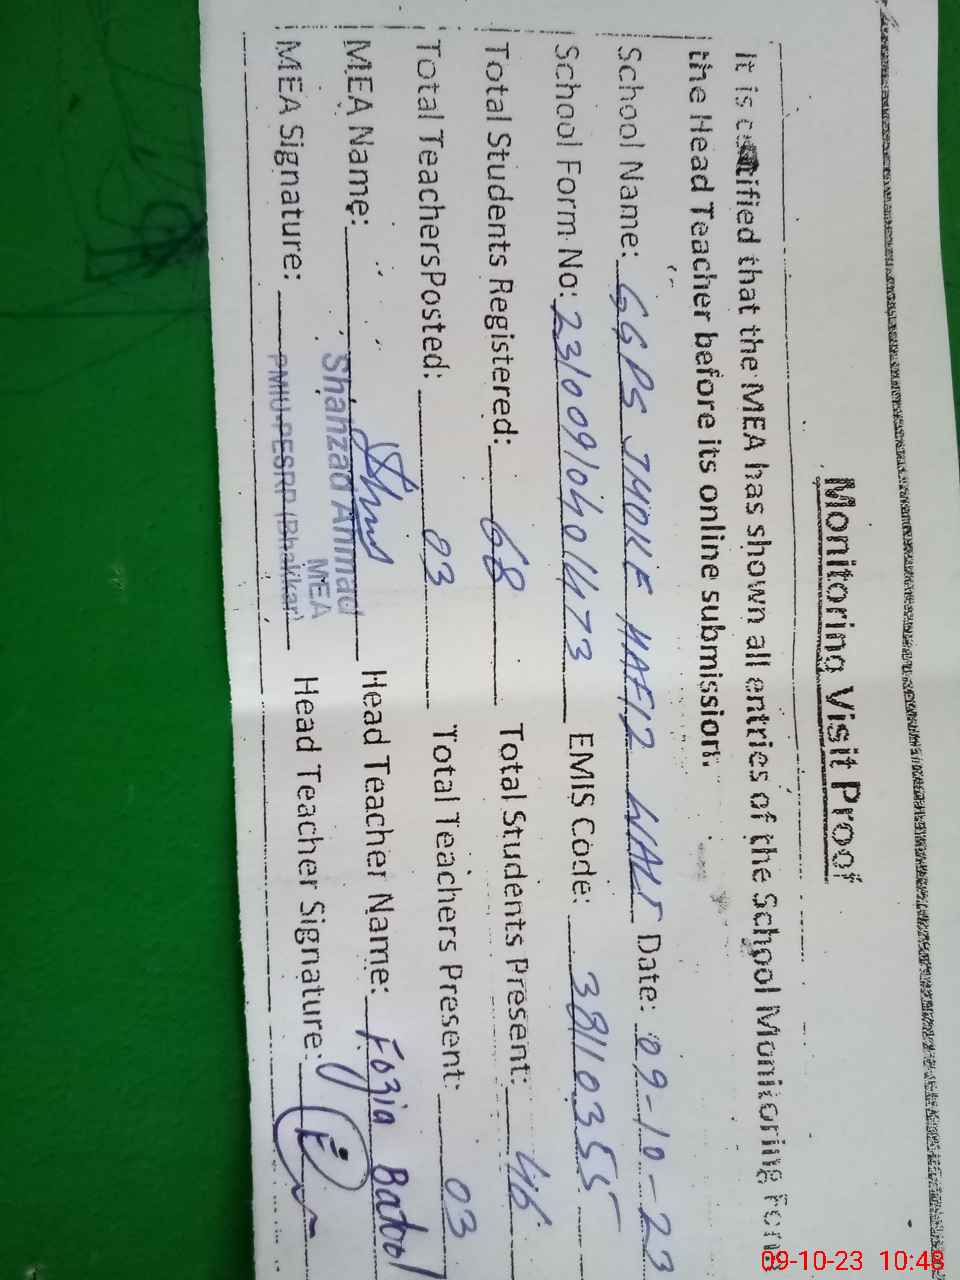 Monitoring Visit Proof
It is certified that the MEA has shown all entries of the School Monitoring Form
the Head Teacher before its online submission.
School Name: GGPS JHOKE HAFIZ WALI Date: 09-10-23
School Form No: 231009104014473 EMIS Code: 38110355
Total Students Registered: 68 Total Students Present: 46
Total TeachersPosted: 03 Total Teachers Present: 03
MEA Name: Shahzad Ahmad Head Teacher Name: Fozia Batool
MEA
MEA Signature: PMIU-PESRP (Bhakkar) Head Teacher Signature:
09-10-23 10:48